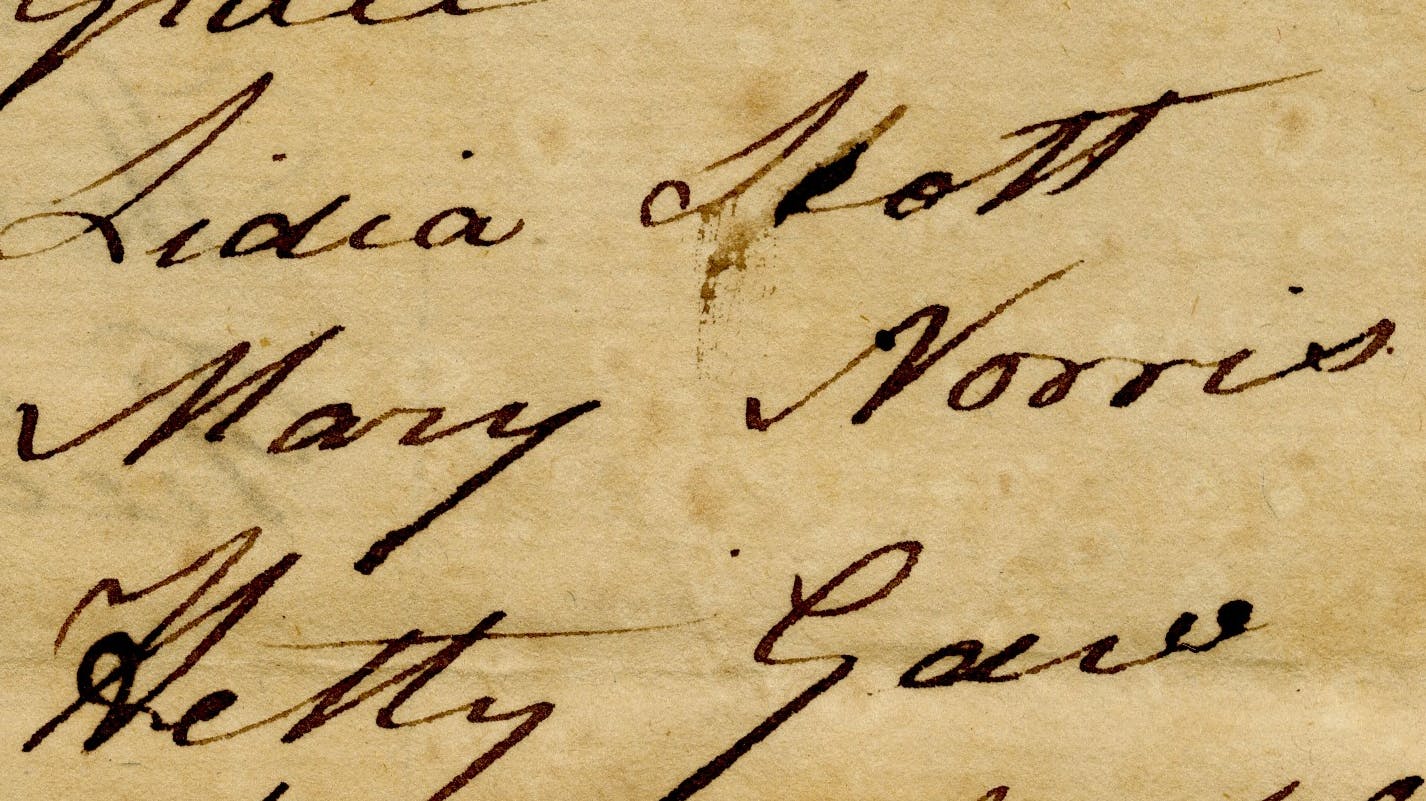 Lidia Scott
Mary Norris
Hetty Gaw